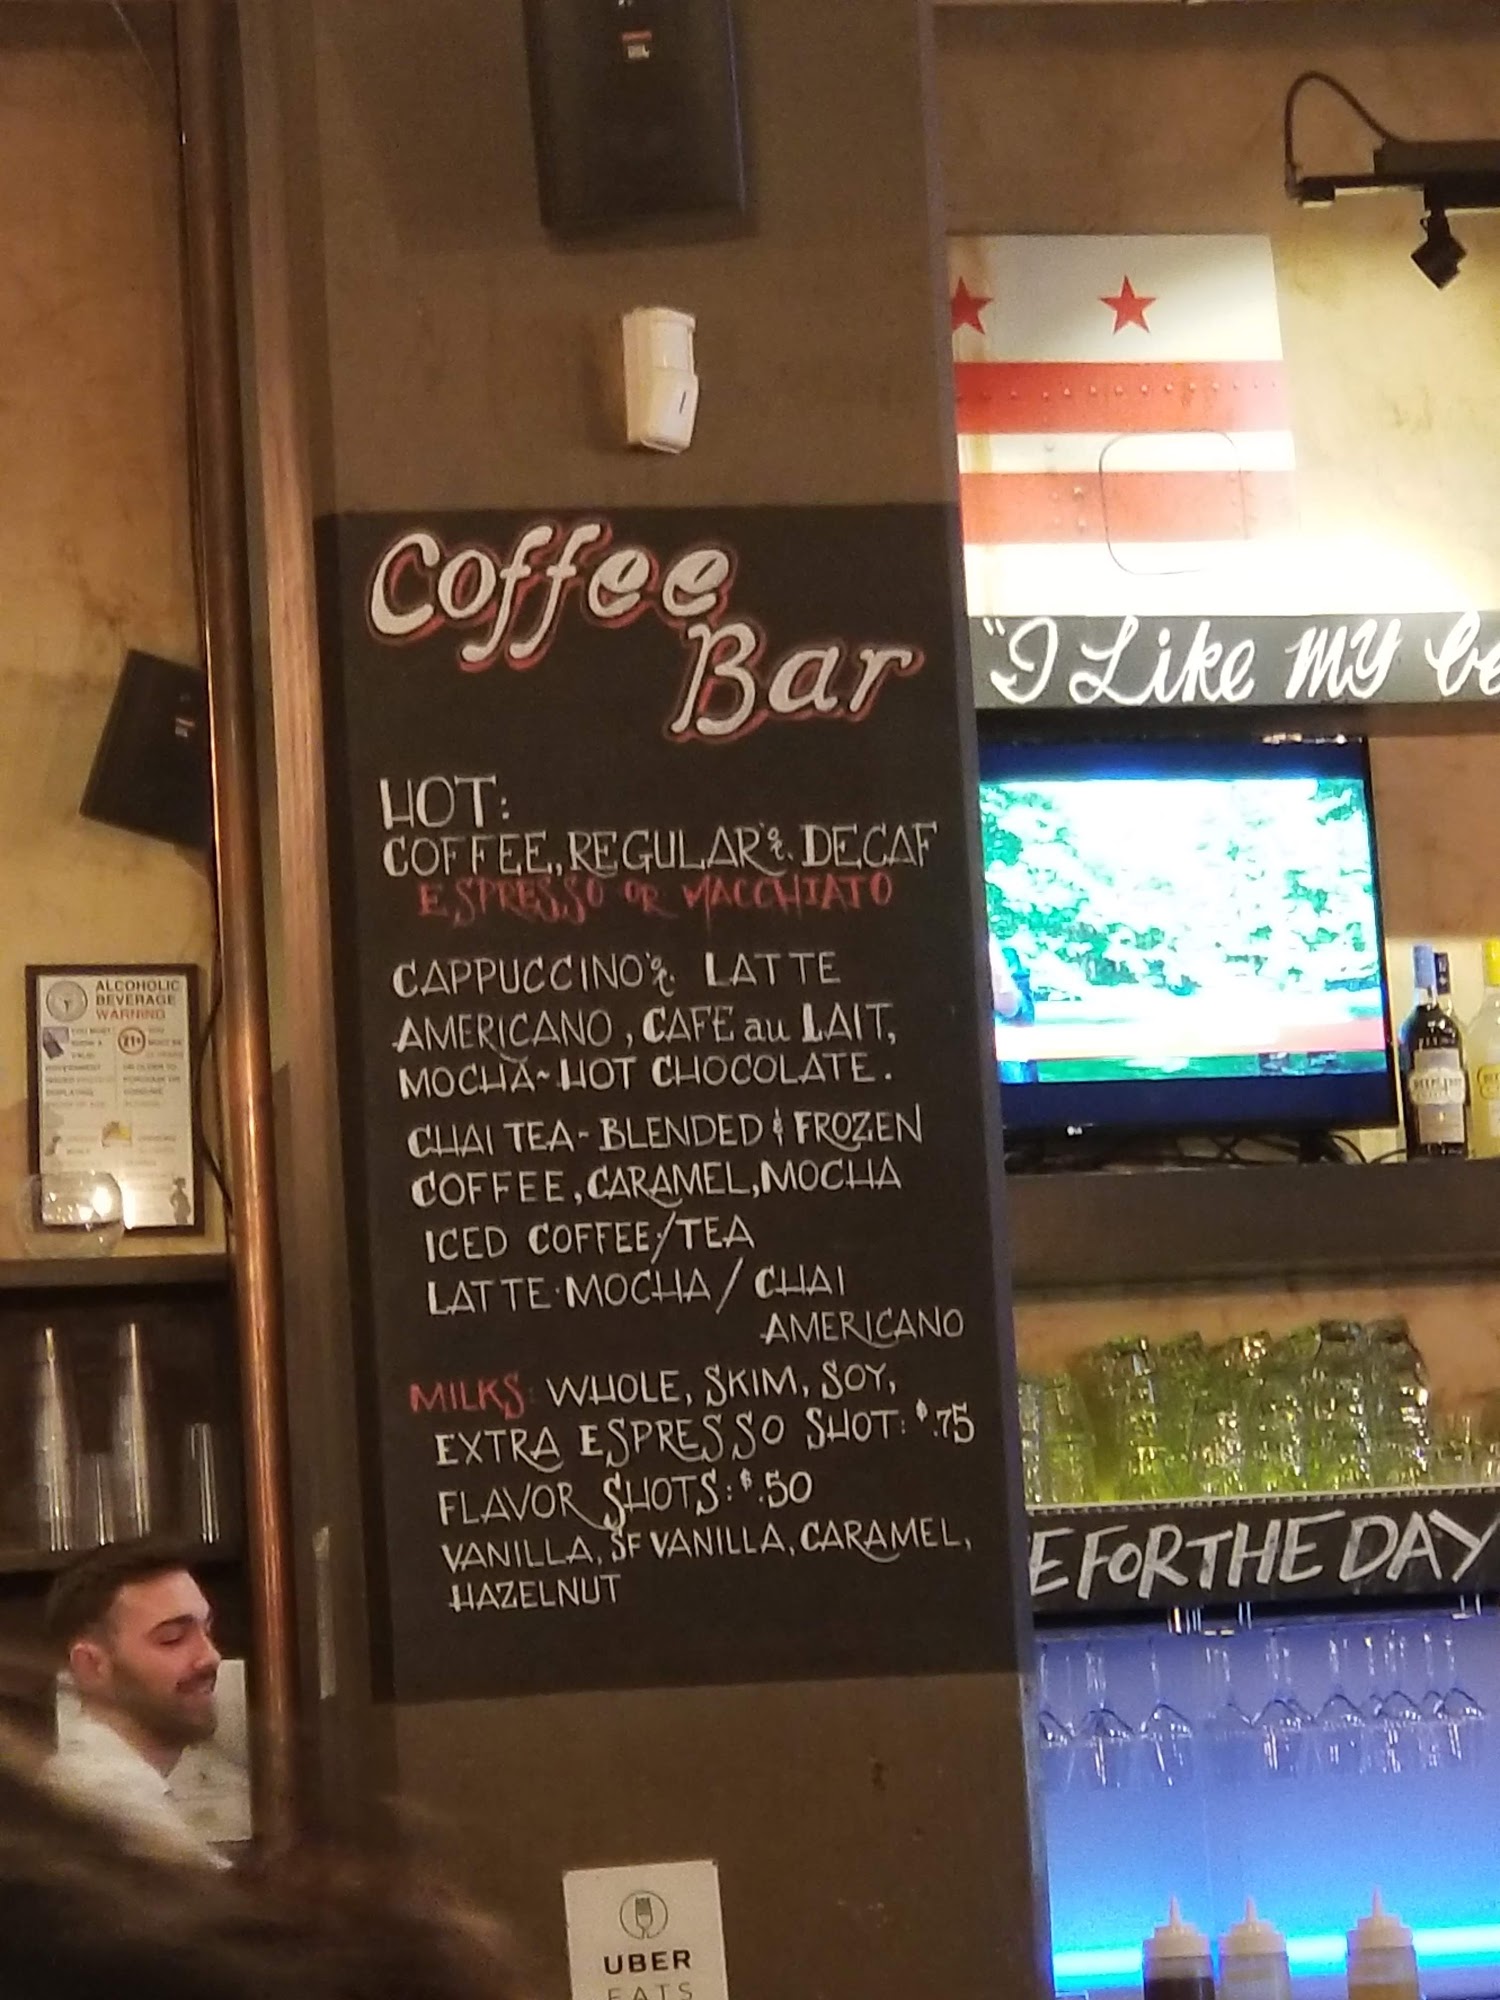 Coffee
Bar
HOT:
COFFEE, REGULAR & DECAF
ESPRESSO OR MACCHIATO
CAPPUCCINO & LATTE
AMERICANO, CAFE au LAIT,
MOCHA~HOT CHOCOLATE.
CHAI TEA- BLENDED & FROZEN
COFFEE, CARAMEL, MOCHA
ICED COFFEE/TEA
LATTE·MOCHA / CHAI
AMERICANO
MILKS: WHOLE, SKIM, SOY,
EXTRA ESPRESSO SHOT: $.75
FLAVOR SHOTS: $.50
VANILLA, SF VANILLA, CARAMEL,
HAZELNUT
"I Like MY be
E FOR THE DAY
ALCOHOLIC
BEVERAGE
WARNING
21+
LG
UBER
EATS